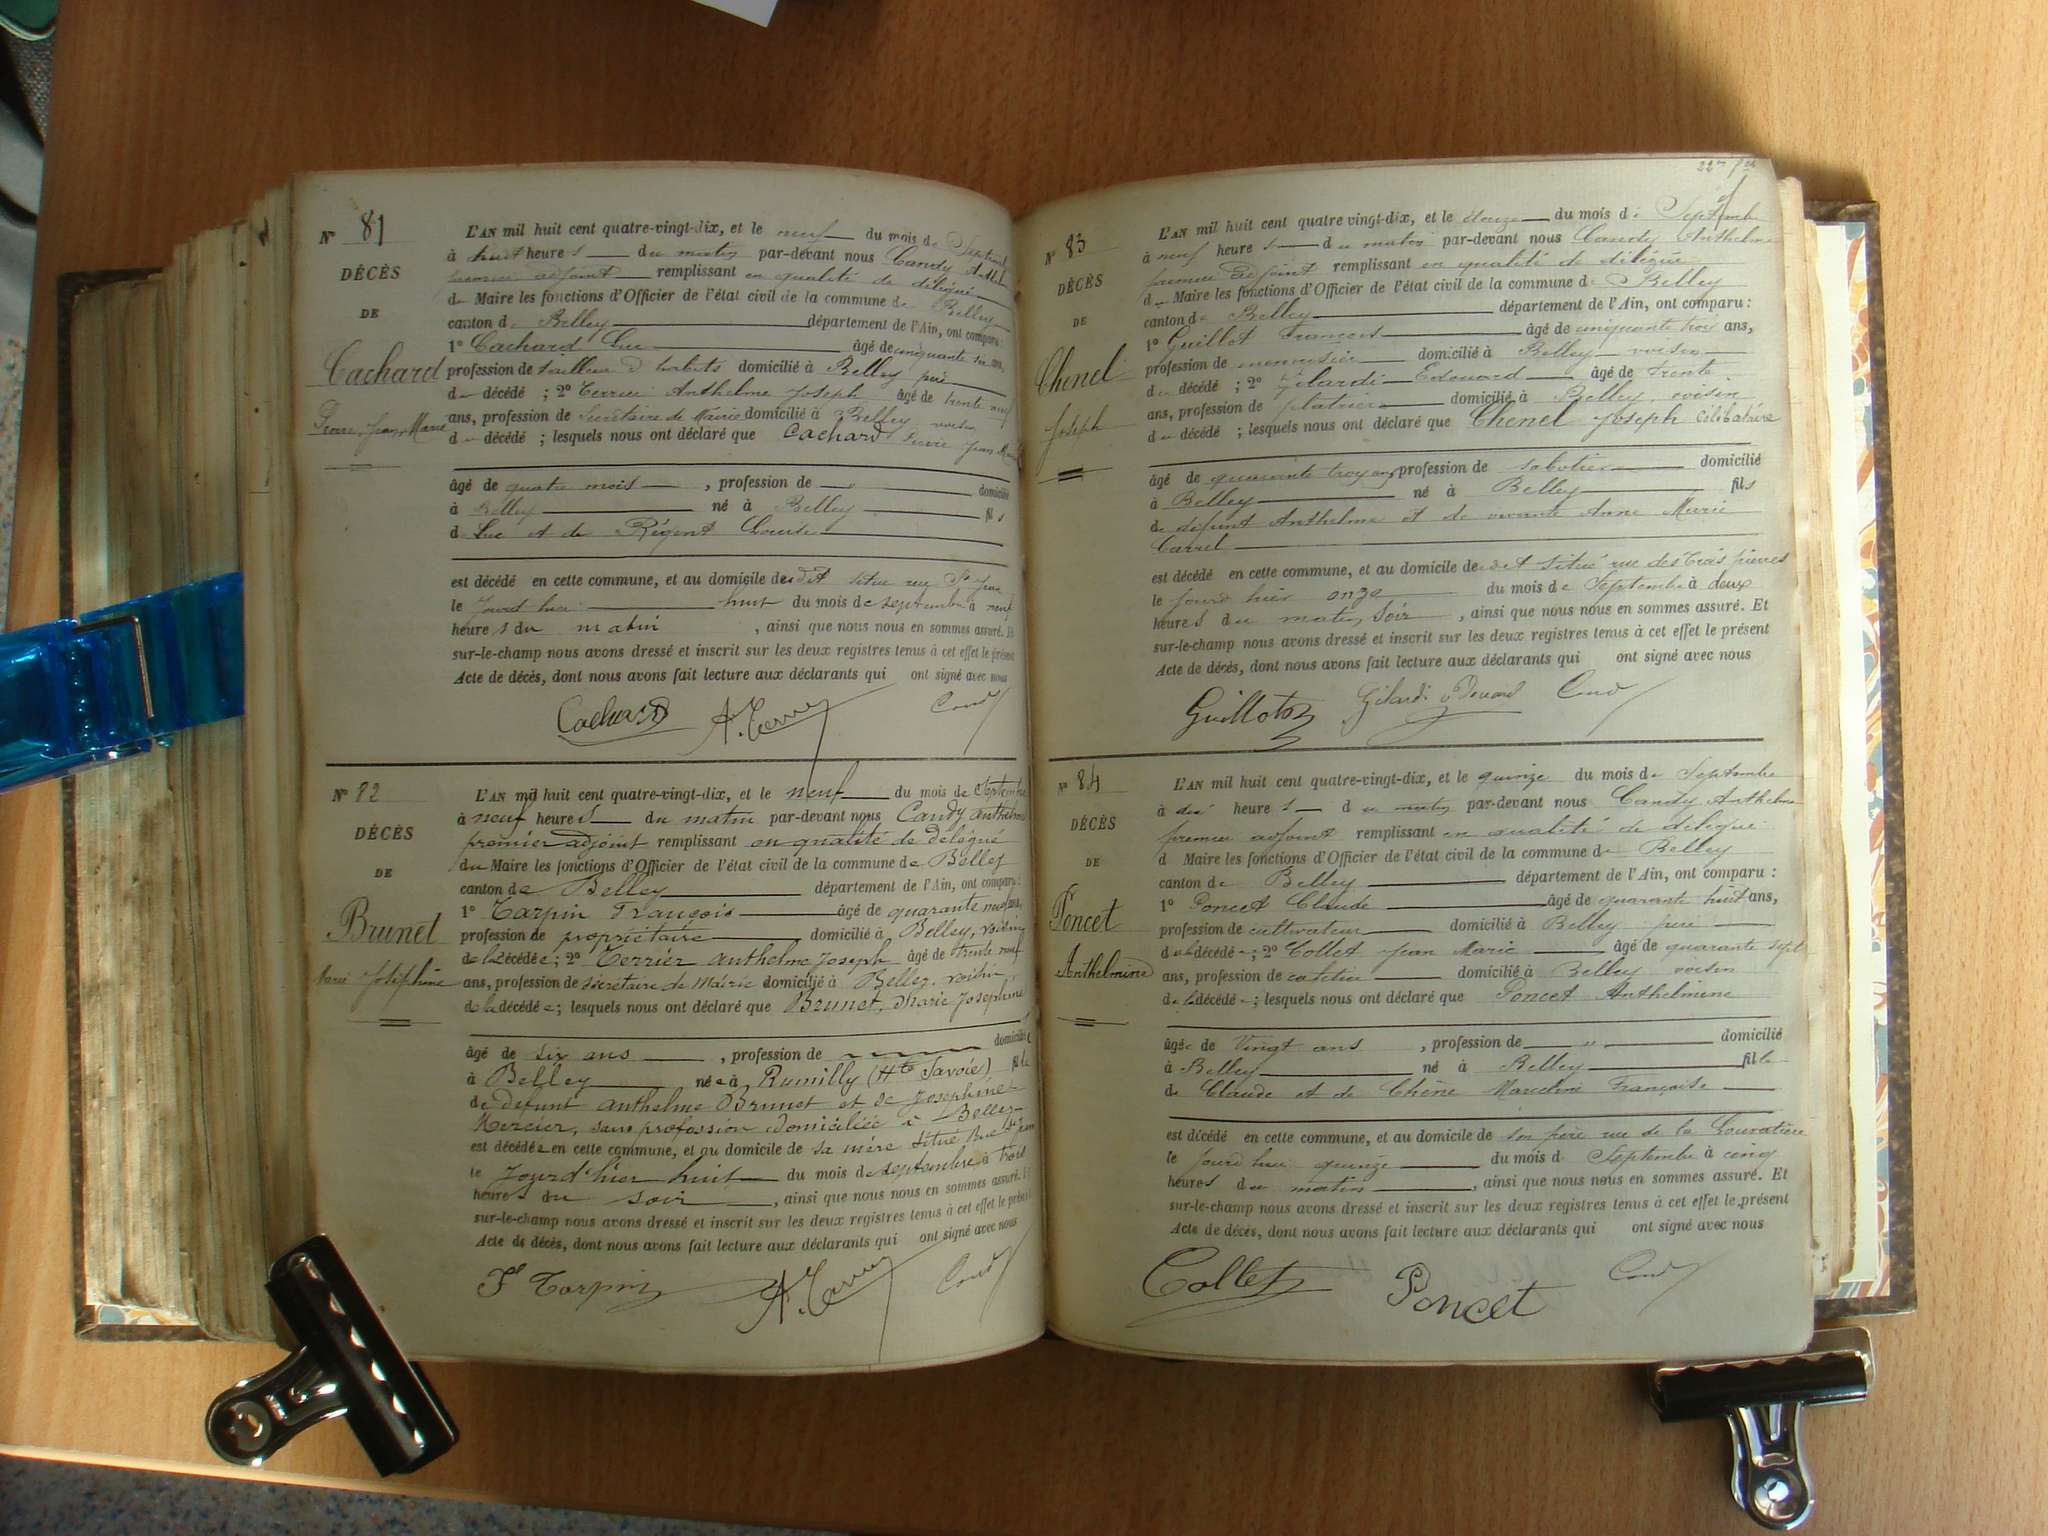 N° 81
DÉCÈS
DE
Cachard
Pierre, Jean, Marie
L'AN mil huit cent quatre-vingt-dix, et le neuf du mois de Septembre
à huit heures du matin par-devant nous Candy Anthelme
premier adjoint remplissant en qualité de délégué
du Maire les fonctions d'Officier de l'état civil de la commune de Belley
canton de Belley département de l'Ain, ont comparu :
1° Cachard Luc âgé de cinquante six ans,
profession de tailleur d'habits domicilié à Belley père
du décédé ; 2° Terrier Anthelme Joseph âgé de trente neuf
ans, profession de Secrétaire de Mairie domicilié à Belley voisin
du décédé ; lesquels nous ont déclaré que Cachard Pierre Jean Marie
âgé de quatre mois , profession de „ domicilié
à Belley né à Belley fils
de Luc et de Régent Louise
est décédé en cette commune, et au domicile de dit situé rue St Jean
le jourd'hui huit du mois de septembre à neuf
heures du matin , ainsi que nous nous en sommes assuré. Et
sur-le-champ nous avons dressé et inscrit sur les deux registres tenus à cet effet le présent
Acte de décès, dont nous avons fait lecture aux déclarants qui ont signé avec nous
Cachard A. Terrier Candy
N° 82
DÉCÈS
DE
Brunet
Marie Joséphine
L'AN mil huit cent quatre-vingt-dix, et le neuf du mois de Septembre
à neuf heures du matin par-devant nous Candy Anthelme
premier adjoint remplissant en qualité de délégué
du Maire les fonctions d'Officier de l'état civil de la commune de Belley
canton de Belley département de l'Ain, ont comparu :
1° Tarpin François âgé de quarante neuf ans,
profession de propriétaire domicilié à Belley, voisin
de la décédée ; 2° Terrier Anthelme Joseph âgé de trente neuf
ans, profession de sécrétaire de Mairie domicilié à Belley, voisin
de la décédée ; lesquels nous ont déclaré que Brunet, Marie Josephine
âgé de six ans , profession de domiciliée
à Belley née à Rumilly (Hte Savoie) fille
de défunt Anthelme Brunet et de Joséphine
Mercier, sans profession domiciliée à Belley
est décédée en cette commune, et au domicile de sa mère situé Rue St Jean
le jourd'hier huit du mois de septembre à trois
heures du soir , ainsi que nous nous en sommes assuré. Et
sur-le-champ nous avons dressé et inscrit sur les deux registres tenus à cet effet le présent
Acte de décès, dont nous avons fait lecture aux déclarants qui ont signé avec nous
Fs Tarpin A. Terrier Candy
227
N° 83
DÉCÈS
DE
Chenel
Joseph
L'AN mil huit cent quatre-vingt-dix, et le douze du mois de Septembre
à neuf heures du matin par-devant nous Candy Anthelme
premier adjoint remplissant en qualité de délégué
du Maire les fonctions d'Officier de l'état civil de la commune de Belley
canton de Belley département de l'Ain, ont comparu :
1° Guillot François âgé de cinquante trois ans,
profession de menuisier domicilié à Belley voisin
du décédé ; 2° Gilardi Edouard âgé de trente
ans, profession de platrier domicilié à Belley voisin
du décédé ; lesquels nous ont déclaré que Chenel Joseph Célibataire
âgé de quarante troys ans profession de sabotier domicilié
à Belley né à Belley fils
de défunt Anthelme et de vivante Anne Marie
Carrel
est décédé en cette commune, et au domicile de dit situé rue des Trois pierres
le jourd'hier onze du mois de Septembre à deux
heures du matin soir , ainsi que nous nous en sommes assuré. Et
sur-le-champ nous avons dressé et inscrit sur les deux registres tenus à cet effet le présent
Acte de décès, dont nous avons fait lecture aux déclarants qui ont signé avec nous
Guillot Gilardi Edouard Candy
N° 84
DÉCÈS
DE
Poncet
Anthelmine
L'AN mil huit cent quatre-vingt-dix, et le quinze du mois de Septembre
à dix heures du matin par-devant nous Candy Anthelme
premier adjoint remplissant en qualité de délégué
d Maire les fonctions d'Officier de l'état civil de la commune de Belley
canton de Belley département de l'Ain, ont comparu :
1° Poncet Claude âgé de quarante huit ans,
profession de cultivateur domicilié à Belley père
de la décédée ; 2° Collet Jean Marie âgé de quarante sept
ans, profession de domicilié à Belley voisin
de la décédée ; lesquels nous ont déclaré que Poncet Anthelmine
âgée de Vingt ans , profession de „ domicilié
à Belley né à Belley fille
de Claude et de Chêne Françoise
est décédé en cette commune, et au domicile de son père rue de la Louvatière
le jourd'hui quinze du mois d Septembre à cinq
heures du matin , ainsi que nous nous en sommes assuré. Et
sur-le-champ nous avons dressé et inscrit sur les deux registres tenus à cet effet le présent
Acte de décès, dont nous avons fait lecture aux déclarants qui ont signé avec nous
Collet Poncet Candy